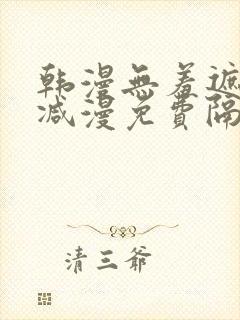 韩漫無羞遮
减漫免費隔
清三爷